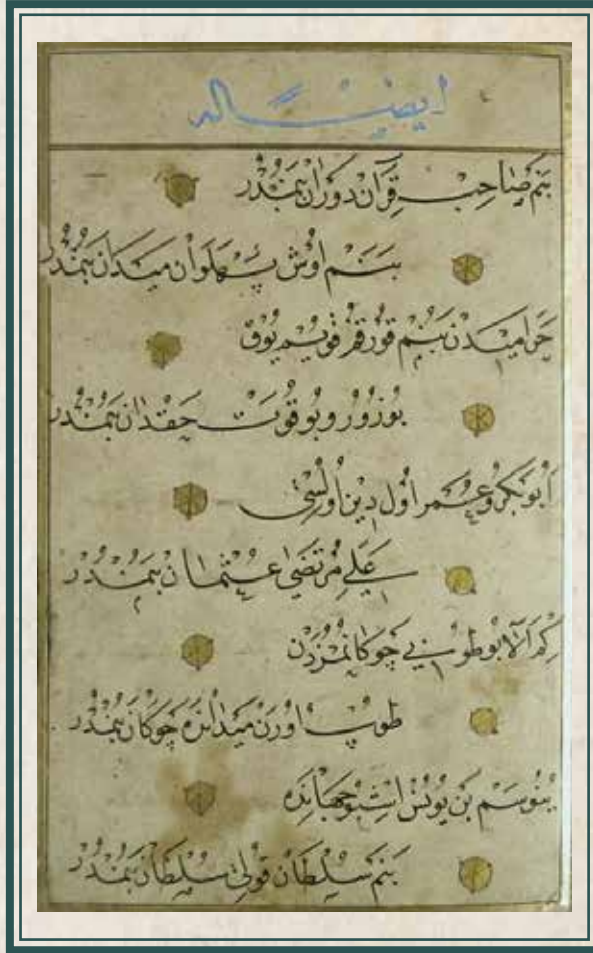 ايضًا له
بَنَم صَاحِب قِرَان دَوْرَان بَنُمدُرْ
بَنَم اُوش پَهلَوانِ مَيدَان بَنُمدُرْ
حَرامِيدَن بَنُم قُورقُم قَوِيُم يُوق
بُو زُور و بُو قُوَّت حَقدَان بَنُمدُرْ
اَبُوبَكر و عُمَر اُول دِين اُولُسِي
عَلِي مُرتَضَى عُثمَان بَنُمدُرْ
كِم اَلَا بُو طُوپِي چَوكَانُمُزدَن
طُوپ اُورَن مَيدَانْدَه چَوكَان بَنُمدُرْ
يُونُس اِشبُو جِهَانْدَه
بَنَم سُلطَان قُولِي سُلطَان بَنُمدُرْ